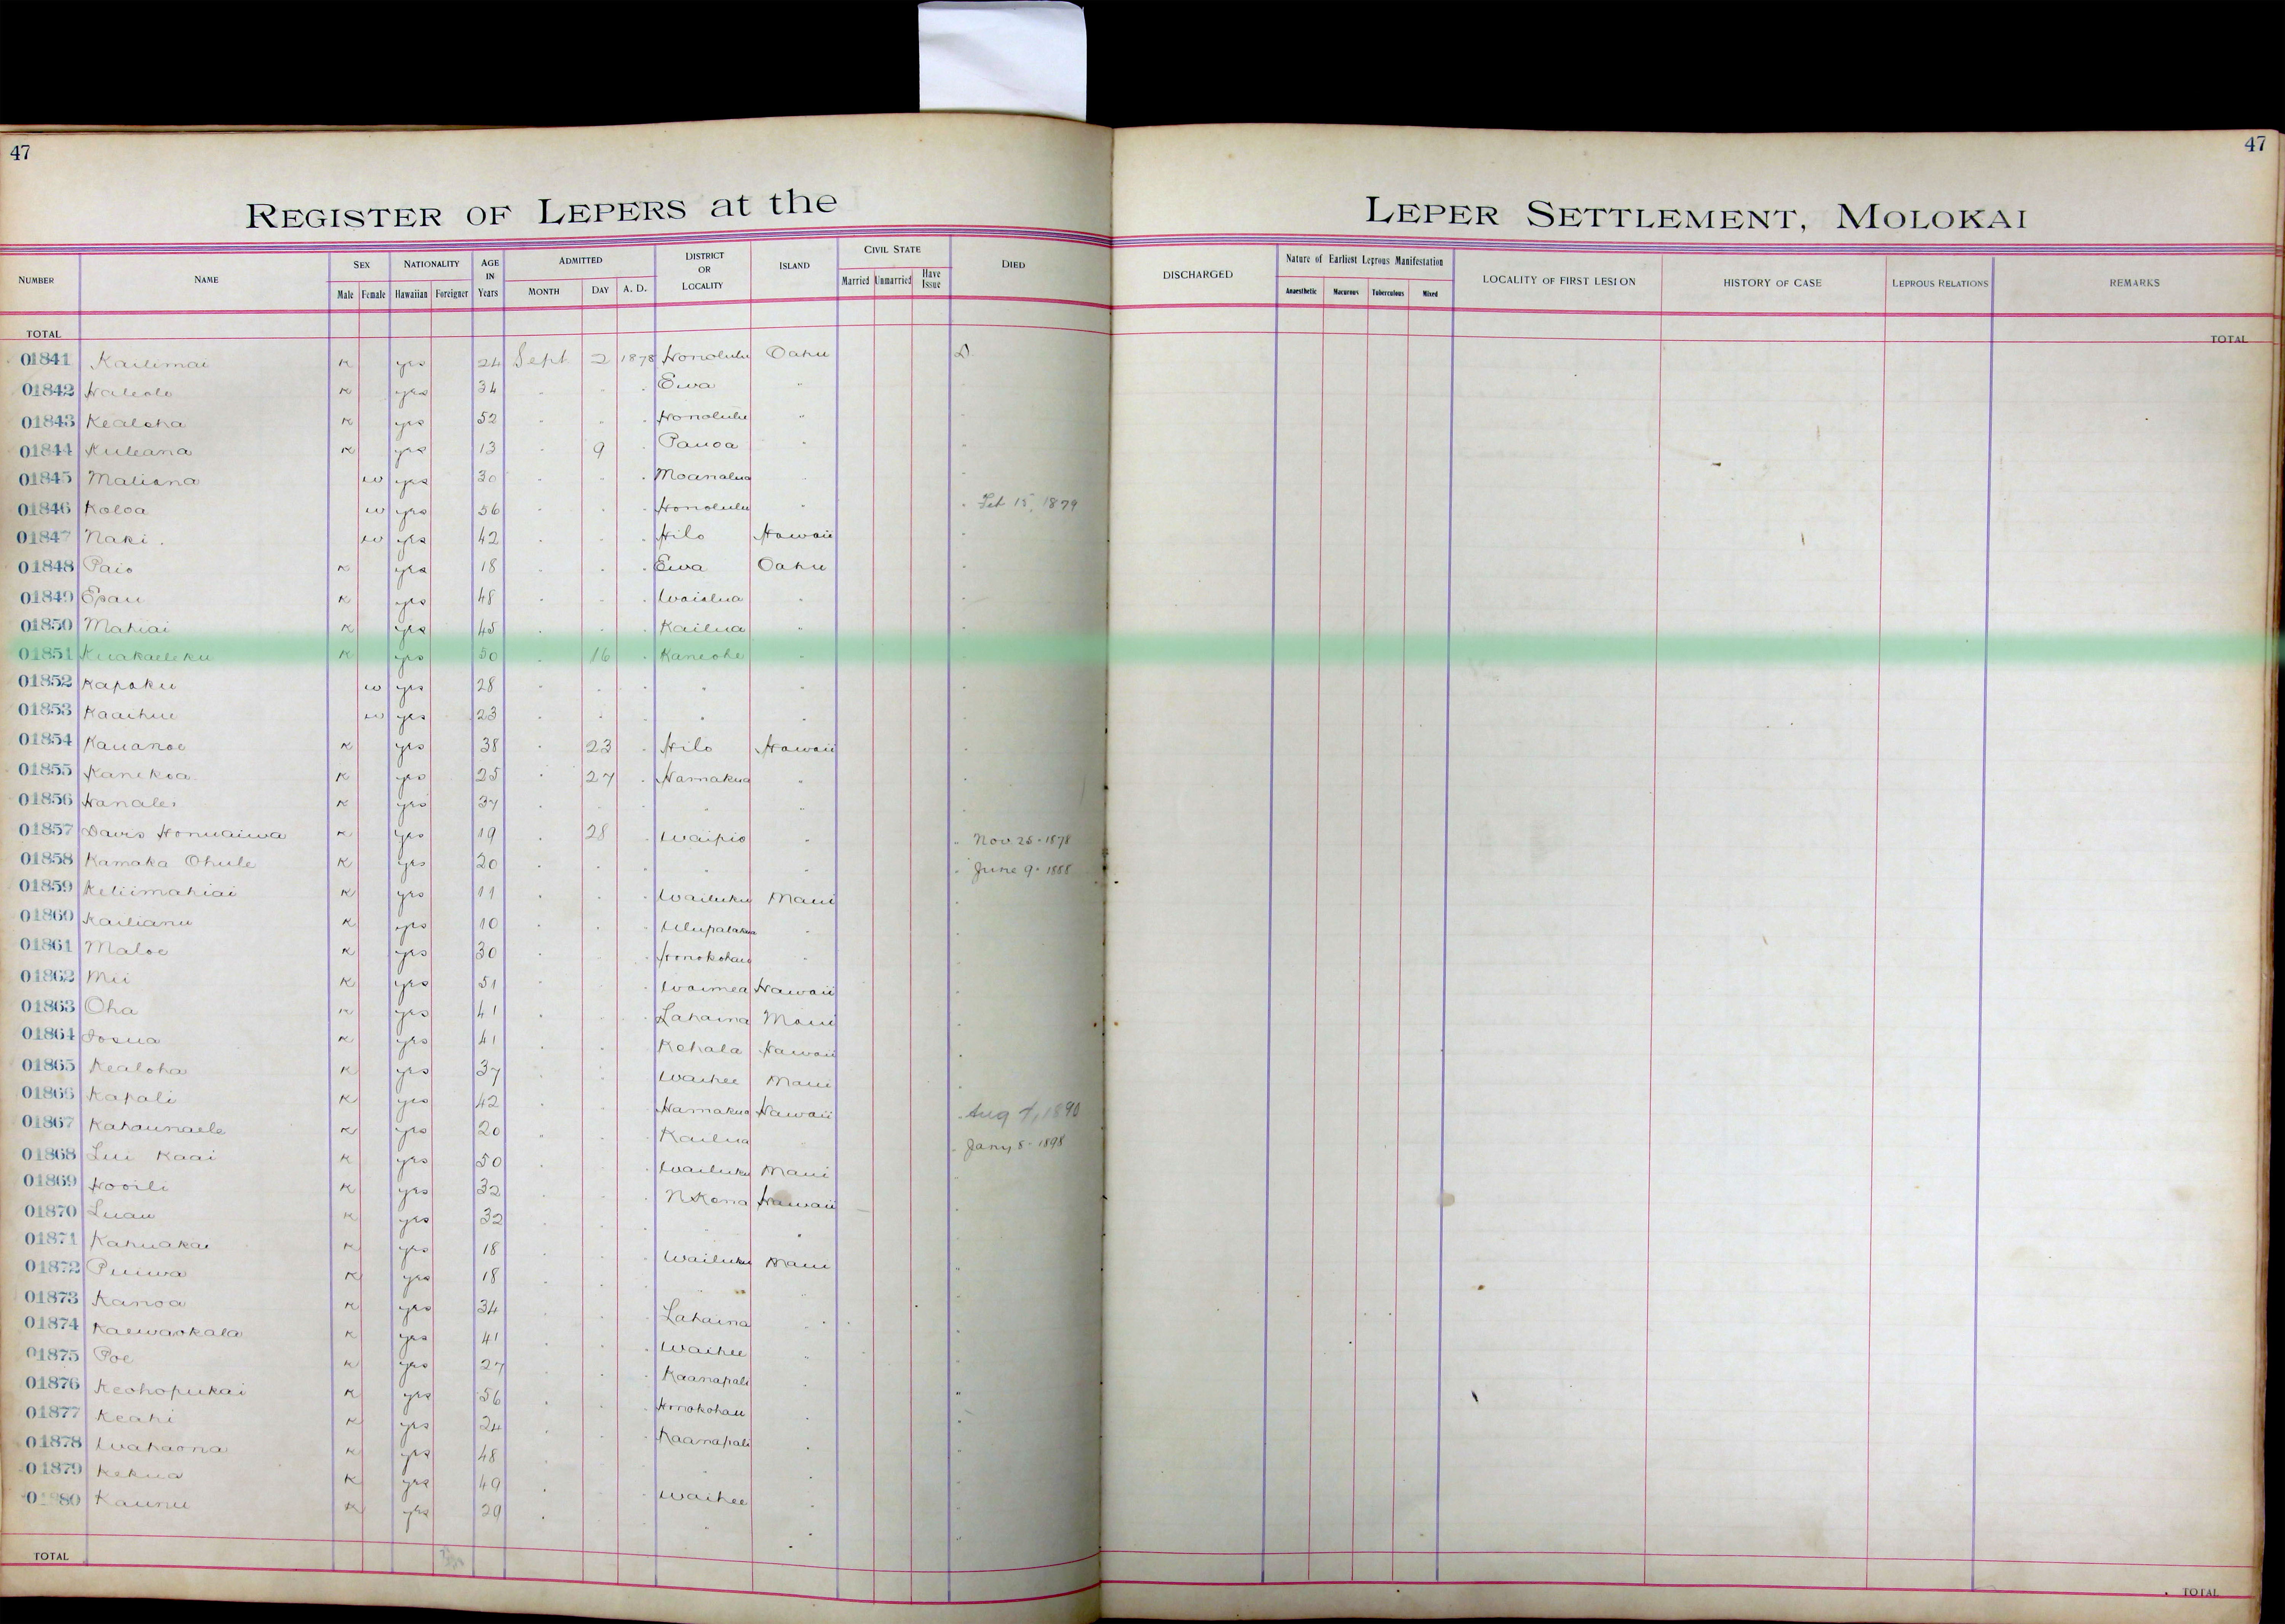 47
47
REGISTER OF LEPERS at the LEPER SETTLEMENT, MOLOKAI
NUMBER NAME SEX NATIONALITY AGE IN Years ADMITTED DISTRICT OR LOCALITY ISLAND CIVIL STATE DIED DISCHARGED Nature of Earliest Leprous Manifestation LOCALITY OF FIRST LESION HISTORY OF CASE LEPROUS RELATIONS REMARKS
Male Female Hawaiian Foreigner MONTH DAY A. D. Married Unmarried Have Issue Anaesthetic Macurous Tuberculous Mixed
TOTAL TOTAL
01841 Kailimai K yes 24 Sept 2 1878 Honolulu Oahu D
01842 Haleole K yes 34 " " " Ewa "
01843 Kealoha K yes 52 " " " Honolulu "
01844 Kuleana K yes 13 " 9 " Pauoa " "
01845 Maliana w yes 30 " " " Moanalua " "
01846 Koloa w yes 56 " " " Honolulu " " Feb 15, 1879
01847 Naki w yes 42 " " " Hilo Hawaii "
01848 Paio K yes 18 " " " Ewa Oahu "
01849 Epau K yes 48 " " " Waialua " "
01850 Mahiai K yes 45 " " " Kailua " "
01851 Kuakaeleku K yes 50 " 16 " Kaneohe "
01852 Kapoku w yes 28 " " " " " "
01853 Kaaihue w yes 23 " " " " " "
01854 Kauanoe K yes 38 " 23 " Hilo Hawaii "
01855 Kanekoa K yes 25 " 27 " Hamakua " "
01856 Hanalei K yes 37 " " " " " "
01857 Davis Honuaiwa K yes 19 " 28 " Waipio " " Nov 25 - 1878
01858 Kamaka Ohule K yes 20 " " " " " " June 9 - 1888
01859 Keliimahiai K yes 11 " " " Wailuku Maui "
01860 Kailianu K yes 10 " " " Ulupalakua " "
01861 Maloe K yes 30 " " " Honokohau " "
01862 Mii K yes 51 " " " Waimea Hawaii "
01863 Oha K yes 41 " " " Lahaina Maui "
01864 Iosua K yes 41 " " " Kohala Hawaii "
01865 Kealoha K yes 37 " " " Waihee Maui "
01866 Kapali K yes 42 " " " Hamakua Hawaii " Aug 7, 1890
01867 Kahaunaele K yes 20 " " " Kailua " " Jany 8 - 1898
01868 Lui Kaai K yes 50 " " " Wailuku Maui "
01869 Hooili K yes 32 " " " N Kona Hawaii "
01870 Luau K yes 32 " " " " " "
01871 Kahuakai K yes 18 " " " Wailuku Maui "
01872 Puiwa K yes 18 " " " " " "
01873 Kanoa K yes 34 " " " Lahaina " "
01874 Kaewaokala K yes 41 " " " Waihee " "
01875 Poe K yes 27 " " " Kaanapali " "
01876 Keohopukai K yes 56 " " " Honokohau " "
01877 Keahi K yes 24 " " " Kaanapali " "
01878 Wahaona K yes 48 " " " " " "
01879 Kekua K yes 49 " " " Waihee " "
0 80 Kaunu K yes 29 " " " " " "
TOTAL TOTAL